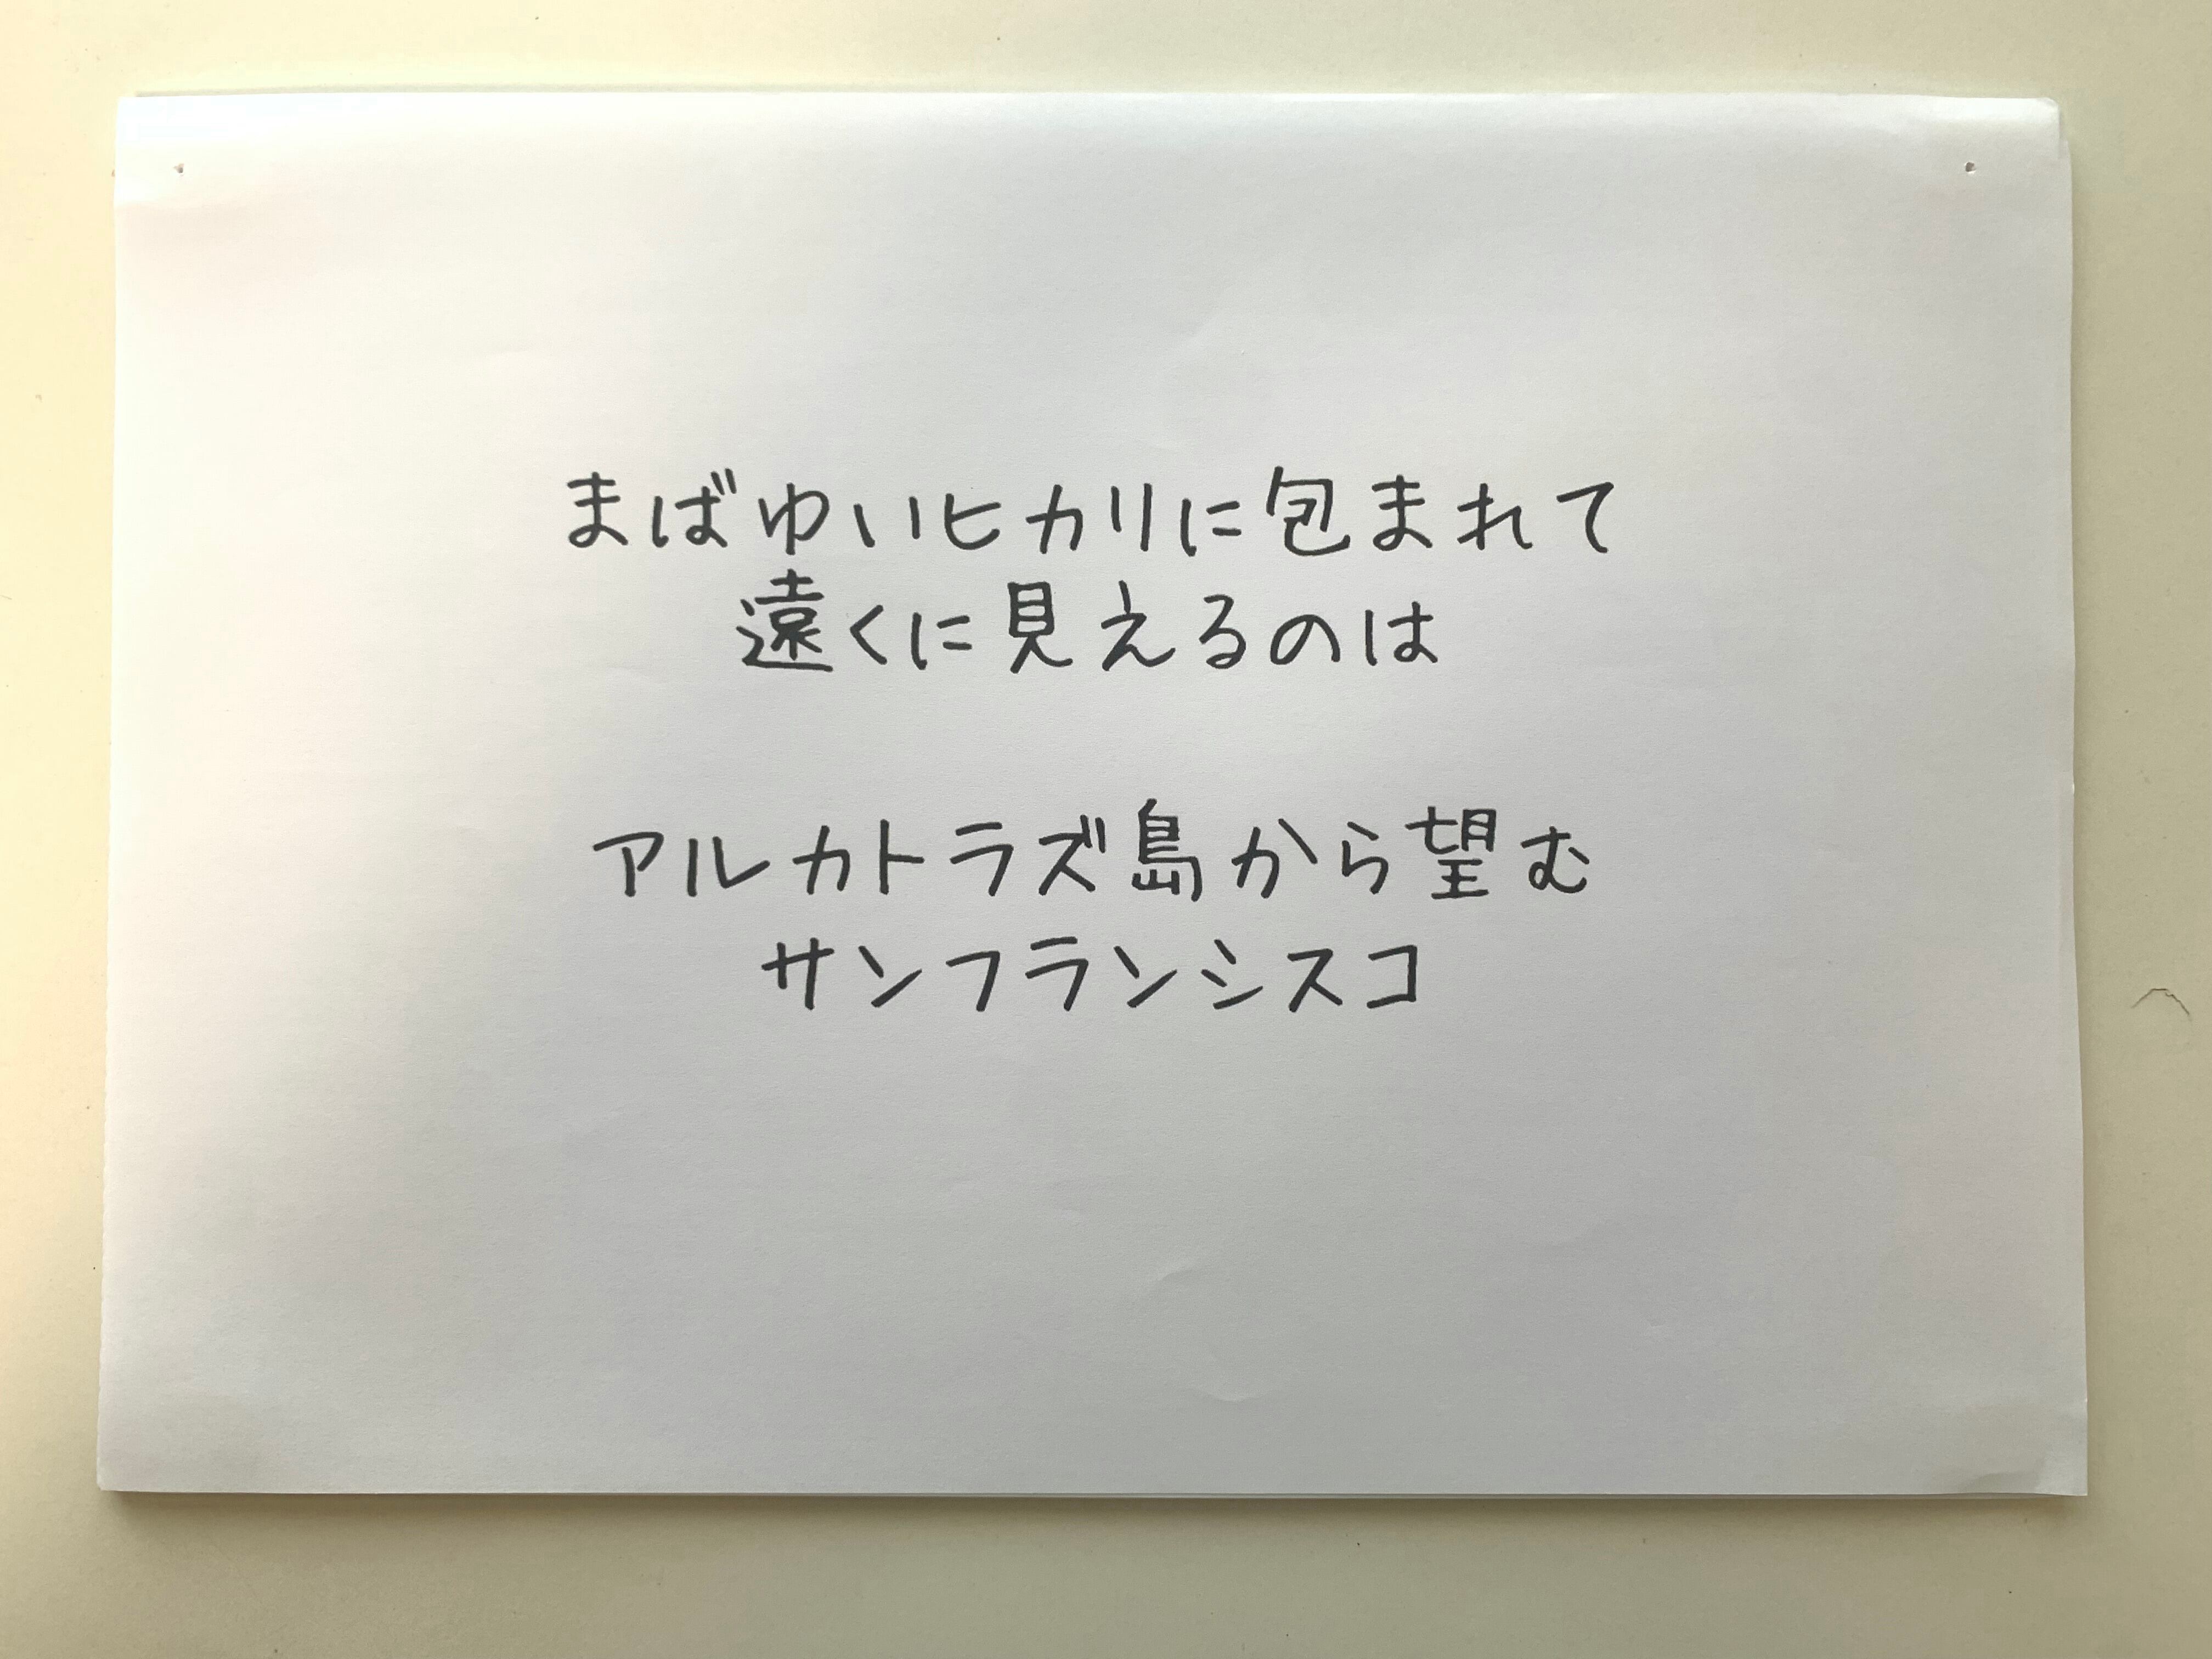 まばゆいヒカリに包まれて
遠くに見えるのは
アルカトラズ島から望む
サンフランシスコ